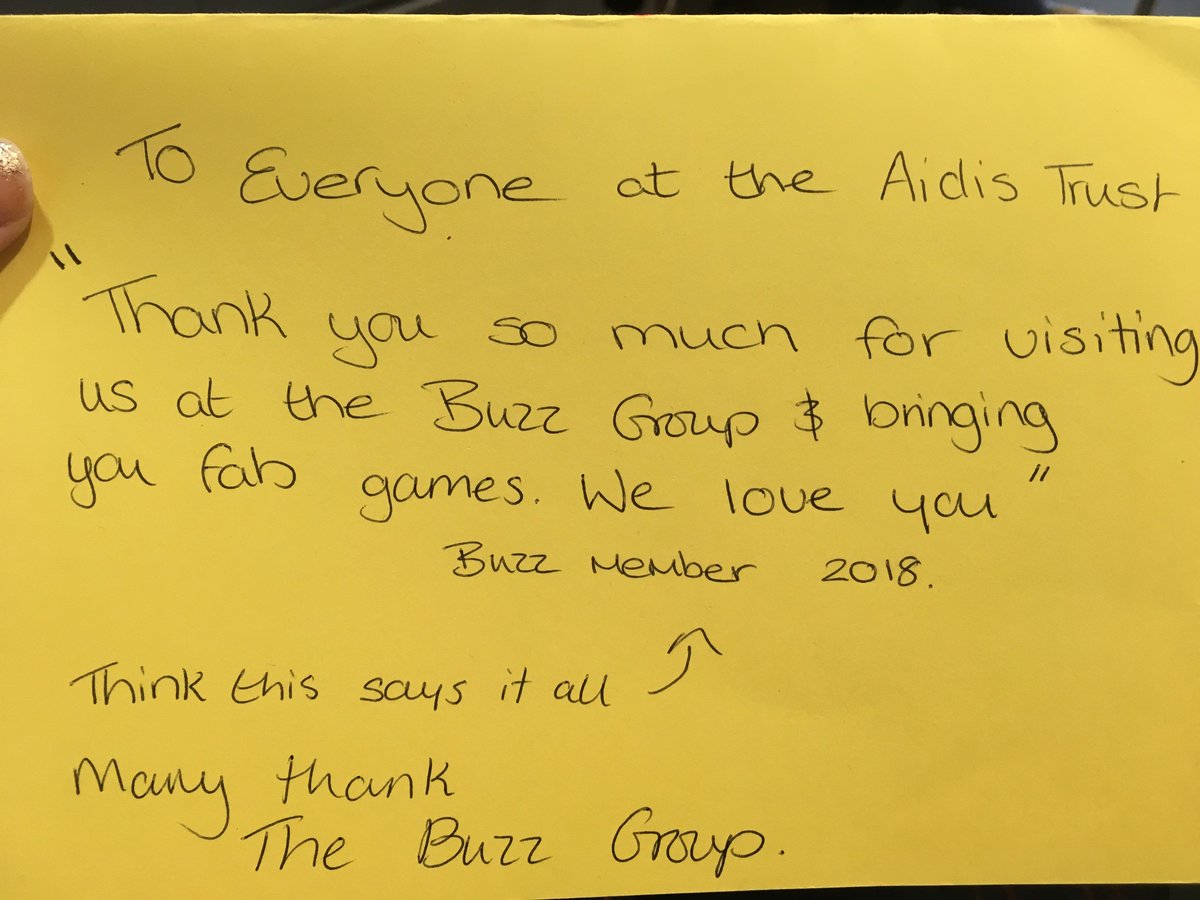 To Everyone at the Aidis Trust
"Thank you so much for visiting
us at the Buzz Group & bringing
you fab games. We love you"
Buzz Member 2018.
Think this says it all
Many thank
The Buzz Group.